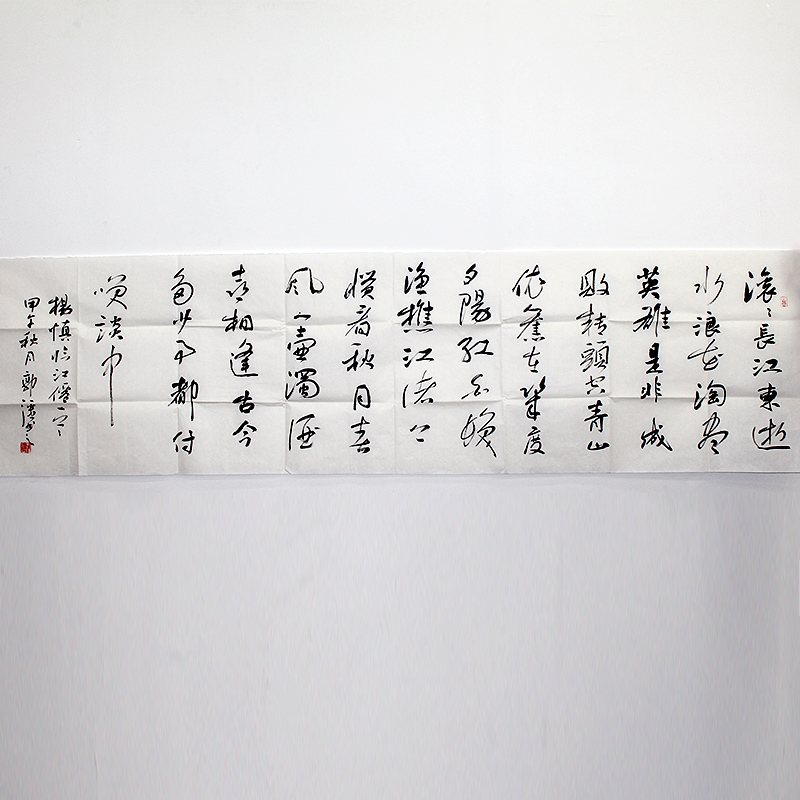 滚〻長江東逝
水浪花淘盡
英雄是非成
敗轉頭空青山
依舊在幾度
夕陽紅白髮
漁樵江渚上
慣看秋月春
風一壺濁酒
喜相逢古今
多少事都付
笑談中
楊慎臨江僊一首
甲午秋月郭